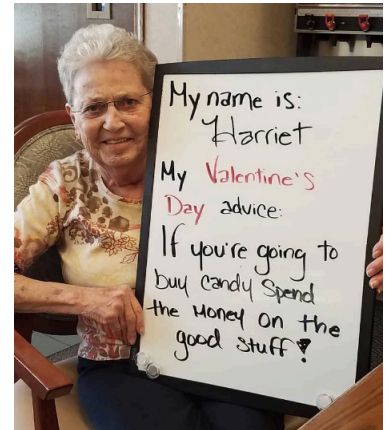 My name is:
Harriet
My Valentine's
Day advice:
If you're going to
buy candy Spend
the Money on the
good stuff!